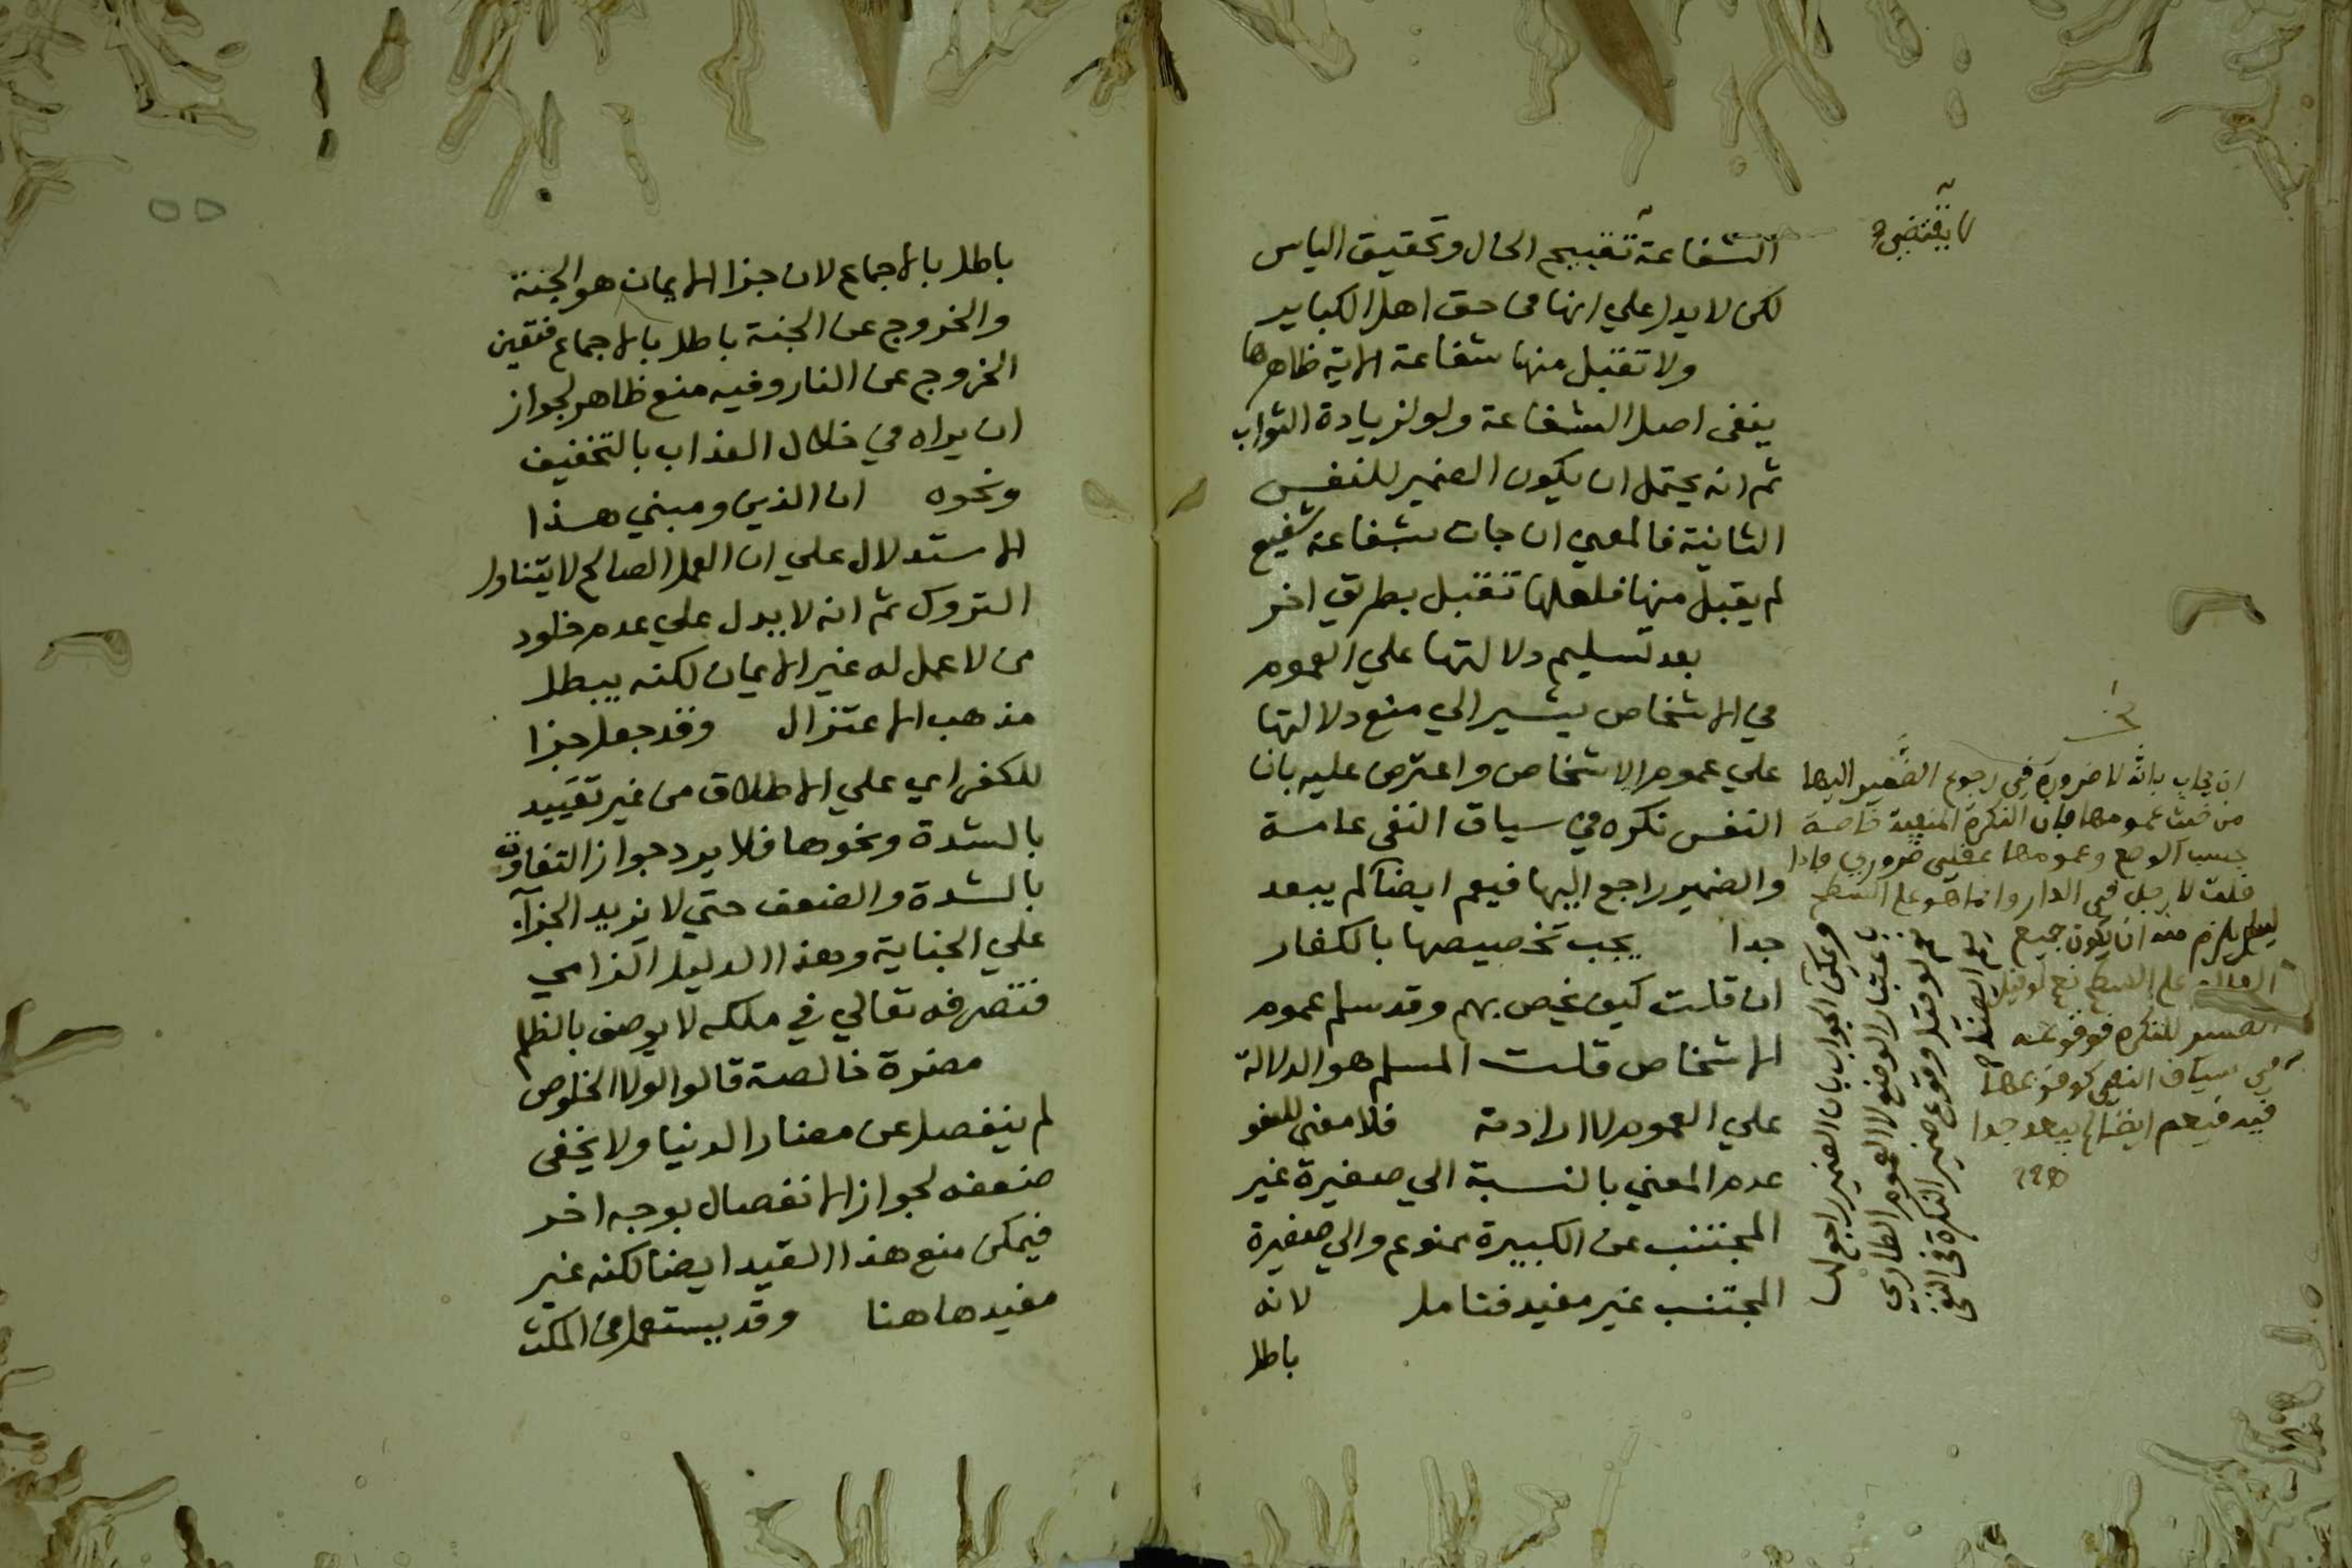 لا يقتضي
الشفاعة تقبيح الحال وتحقيق الياس
لكن لا يدل علي انها في حق اهل الكباير
ولا تقبل منها شفاعة الاية ظاهرها
ينفى اصل الشفاعة ولو لزيادة الثواب
ثم انه يحتمل ان يكون الضمير للنفس
الثانية فالمعني ان جات بشفاعة شفيع
لم يقبل منها فلعلها تقبل بطريق اخر
بعد تسليم دلالتها علي العموم
في الاشخاص يشير الي منع دلالتها
علي عموم الاشخاص واعترض عليه بان
النفس نكره في سياق النفى عامة
والضمير راجع اليها فيعم ايضا لم يبعد
جدا يجب تخصيصها بالكفار
ان قلت كيف يخص بهم وقد سلم عموم
الاشخاص قلت المسلم هو الدلالة
علي العموم لا ارادته فلا معنى للعفو
عدم المعني بالنسبة الي صغيرة غير
المجتنب عن الكبيرة ممنوع والي صغيرة
المجتنب غير مفيد فتامل لانه
باطل
ان يجاب بانه لا ضرورة في رجوع الضمير اليها
من حيث عمومها فان النكرة المنفية خاصة
بحسب الوضع وعمومها عقلى ضروري فاذا
قلت لا رجل في الدار وانما هو علي السطح
ليس يلزم منه ان يكون جميع
العالم علي السطح نعم لو قيل
الضمير للنكرة فوقوعه
في سياق النفي كوقوعها
فيه فيعم ايضا لم يبعد جدا
ويمكن الجواب بان الضمير راجع لها
باعتبار الوضع لا العموم الطاري
نعم لو قيل وقوع ضمير النكرة في النفي
باطل بالاجماع لان جزا الايمان هو الجنة
والخروج عن الجنة باطل بالاجماع فتعين
الخروج عن النار وفيه منع ظاهر لجواز
ان يراه في خلال العذاب بالتخفيف
ونحوه ان الذين ومبني هذا
الاستدلال علي ان العمل الصالح لا يتناول
التروك ثم انه لا يدل علي عدم خلود
من لا عمل له غير الايمان لكنه يبطل
مذهب الاعتزال وقد جعل جزا
للكفر اي علي الاطلاق من غير تقييد
بالشدة ونحوها فلا يرد جواز التفاوت
بالشدة والضعف حتي لا يزيد الجزآء
علي الجناية وهذا الدليل الزامي
فتصرفه تعالي في ملكه لا يوصف بالظلم
مضرة خالصة قالوا لولا الخلوص
لم ينفصل عن مضار الدنيا ولا يخفى
ضعفه لجواز الانفصال بوجه اخر
فيمكن منع هذا القيد ايضا لكنه غير
مفيد هاهنا وقد يستعمل في المكث